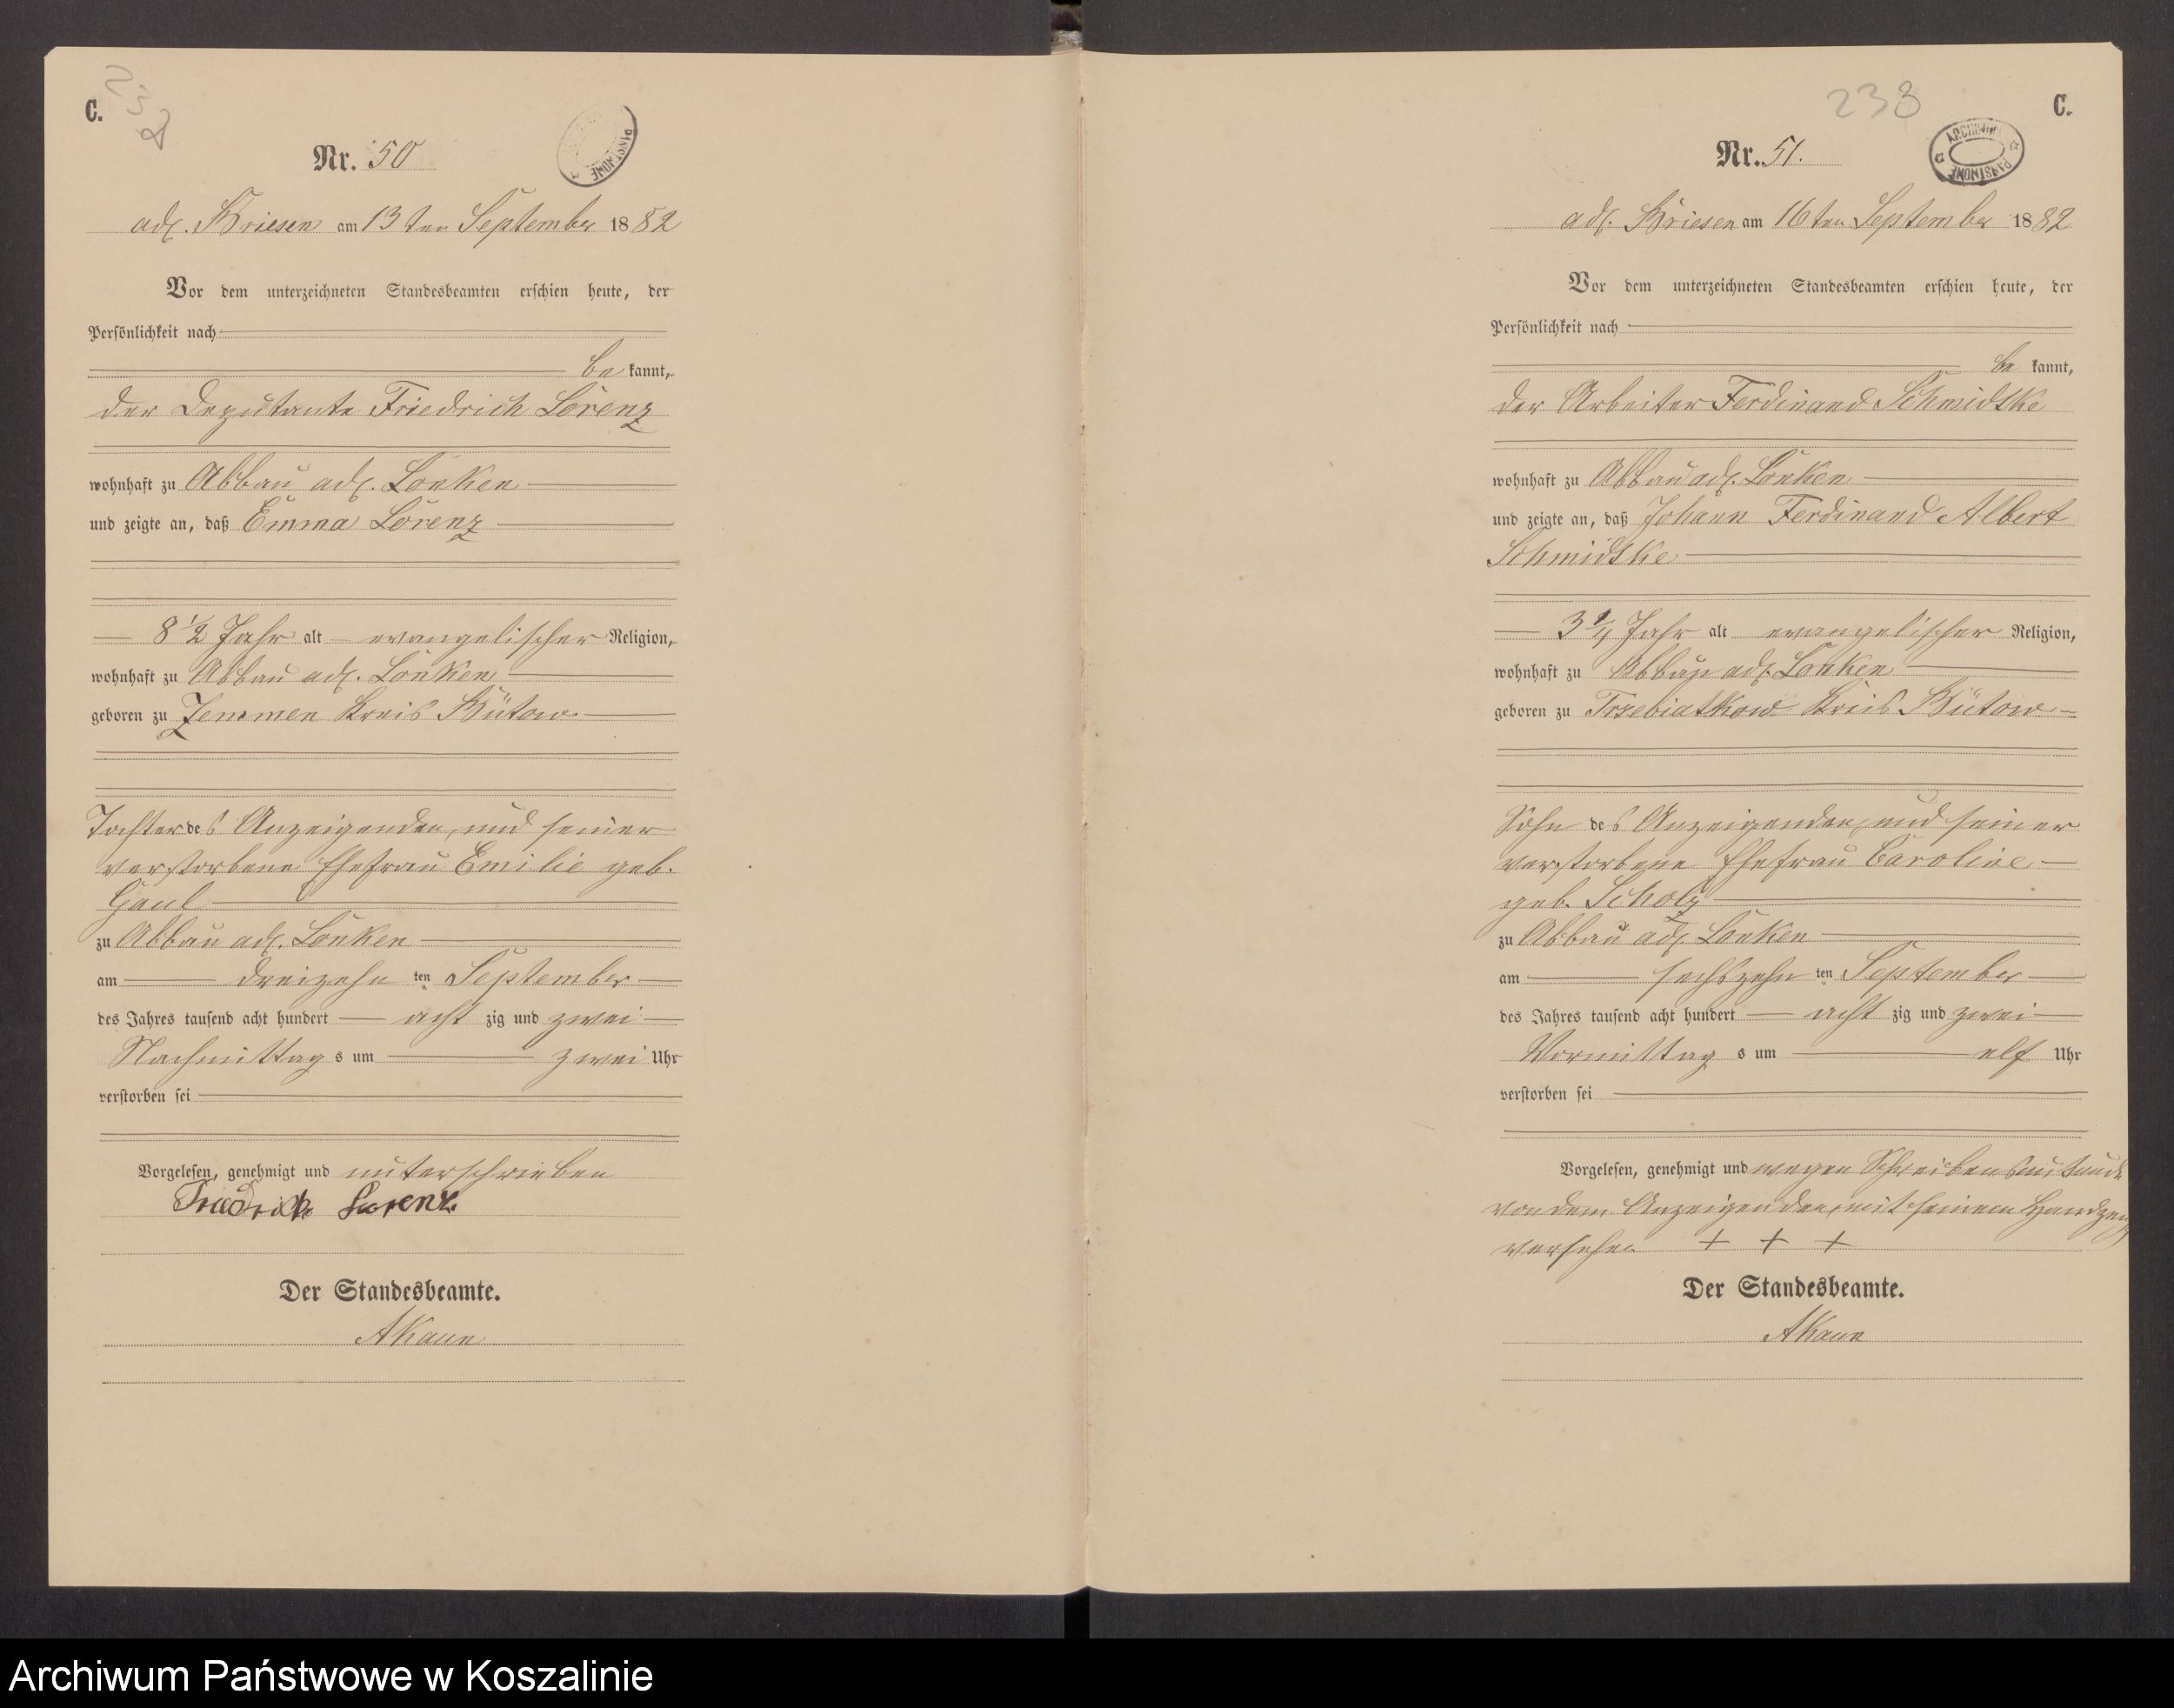 C.
232
Nr. 50
adl. Briesen am 13ten September 1882
Vor dem unterzeichneten Standesbeamten erschien heute, der
Persönlichkeit nach
be kannt,
der Deputante Friedrich Lorenz
wohnhaft zu Abbau adl. Lonken
und zeigte an, daß Emma Lorenz
8 1/2 Jahr alt evangelischer Religion,
wohnhaft zu Abbau adl. Lonken
geboren zu Zemmen Kreis Bütow
Tochter des Anzeigenden, und seiner
verstorbene Ehefrau Emilie geb.
Gaul
zu Abbau adl. Lonken
am dreizehn ten September
des Jahres tausend acht hundert acht zig und zwei
Nachmittag s um zwei Uhr
verstorben sei
Vorgelesen, genehmigt und unterschrieben
Friedrich Lorenz
Der Standesbeamte.
AKaun
233
C.
ARCHIWUM PAŃSTWOWE
Nr. 51.
adl. Briesen am 16ten September 1882
Vor dem unterzeichneten Standesbeamten erschien heute, der
Persönlichkeit nach
be kannt,
der Arbeiter Ferdinand Schmidtke
wohnhaft zu Abbau adl. Lonken
und zeigte an, daß Johann Ferdinand Albert
Schmidtke
3 1/4 Jahr alt evangelischer Religion,
wohnhaft zu Abbau adl. Lonken
geboren zu Trzebiatkow Kreis Bütow
Sohn des Anzeigenden, und seiner
verstorbene Ehefrau Caroline
geb. Scholz
zu Abbau adl. Lonken
am sechszehn ten September
des Jahres tausend acht hundert acht zig und zwei
Vormittag s um elf Uhr
verstorben sei
Vorgelesen, genehmigt und wegen Schreibensunkunde
von dem Anzeigenden, mit seinem Handzeig
versehen + + +
Der Standesbeamte.
AKaun
Archiwum Państwowe w Koszalinie